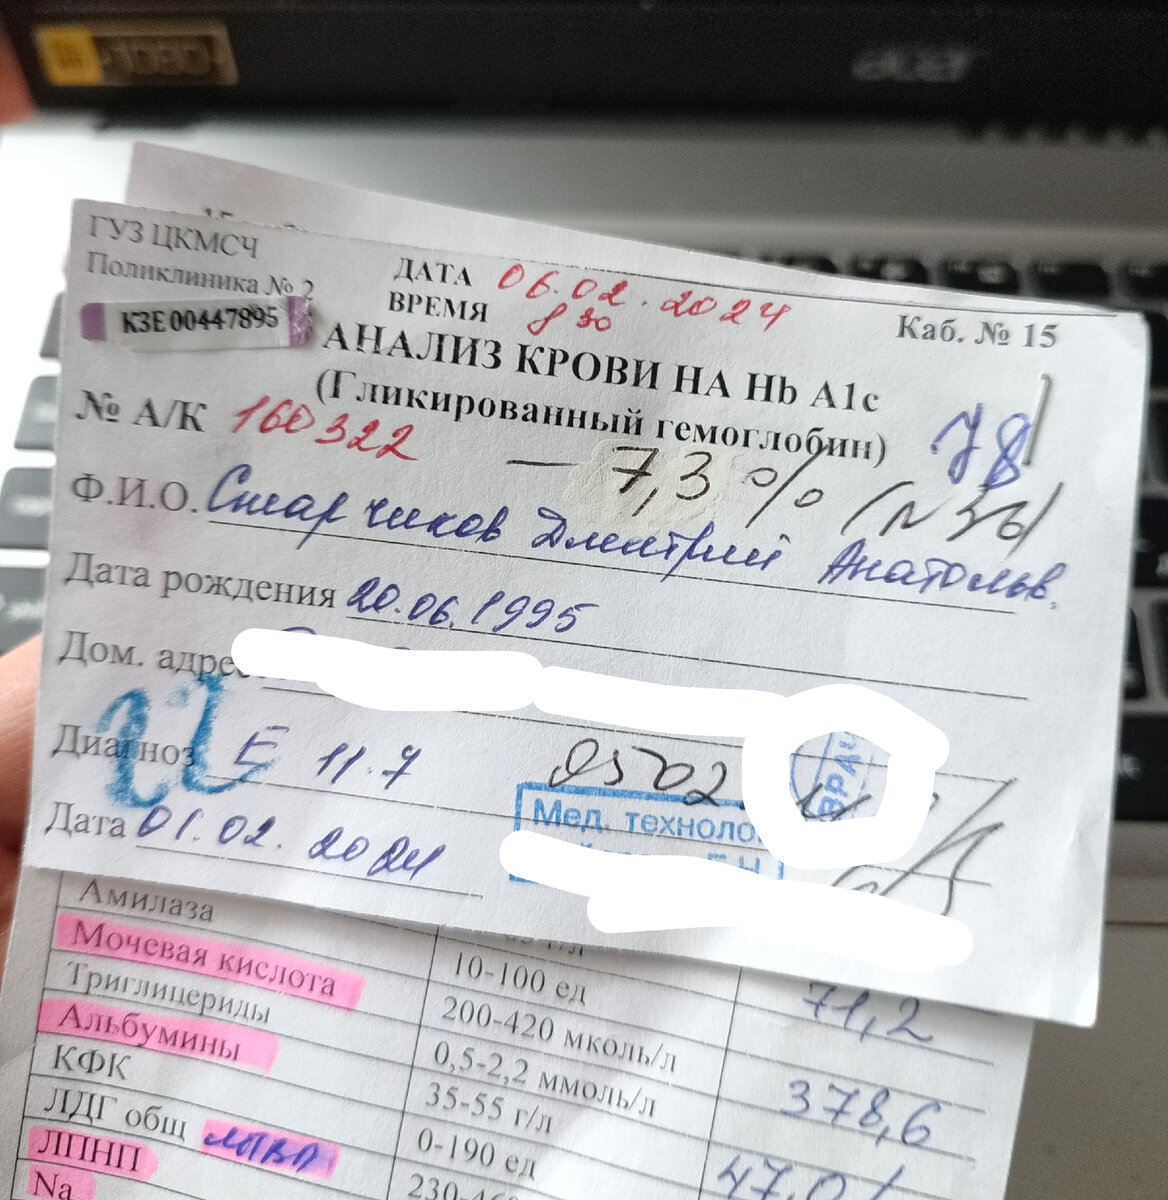 1080
acer
ГУЗ ЦКМСЧ
Поликлиника № 2
КЗЕ00447895
ДАТА 06.02.2024
ВРЕМЯ 8 30
Каб. № 15
АНАЛИЗ КРОВИ НА Hb A1c
(Гликированный гемоглобин)
78
№ А/К 160322
— 7,3 %
Ф.И.О. Старчиков Дмитрий Анатольв.
Дата рождения 20.06.1995
Дом. адрес
Диагноз Е 11.7
Мед. техноло
ВРАЧ
Дата 01.02.2024
Амилаза 10-100 ед 71,2
Мочевая кислота 200-420 мколь/л 378,6
Триглицериды 0,5-2,2 ммоль/л
Альбумины 35-55 г/л 47,0
КФК 0-190 ед
ЛДГ общ 230-46
ЛПВП
ЛПНП
Na